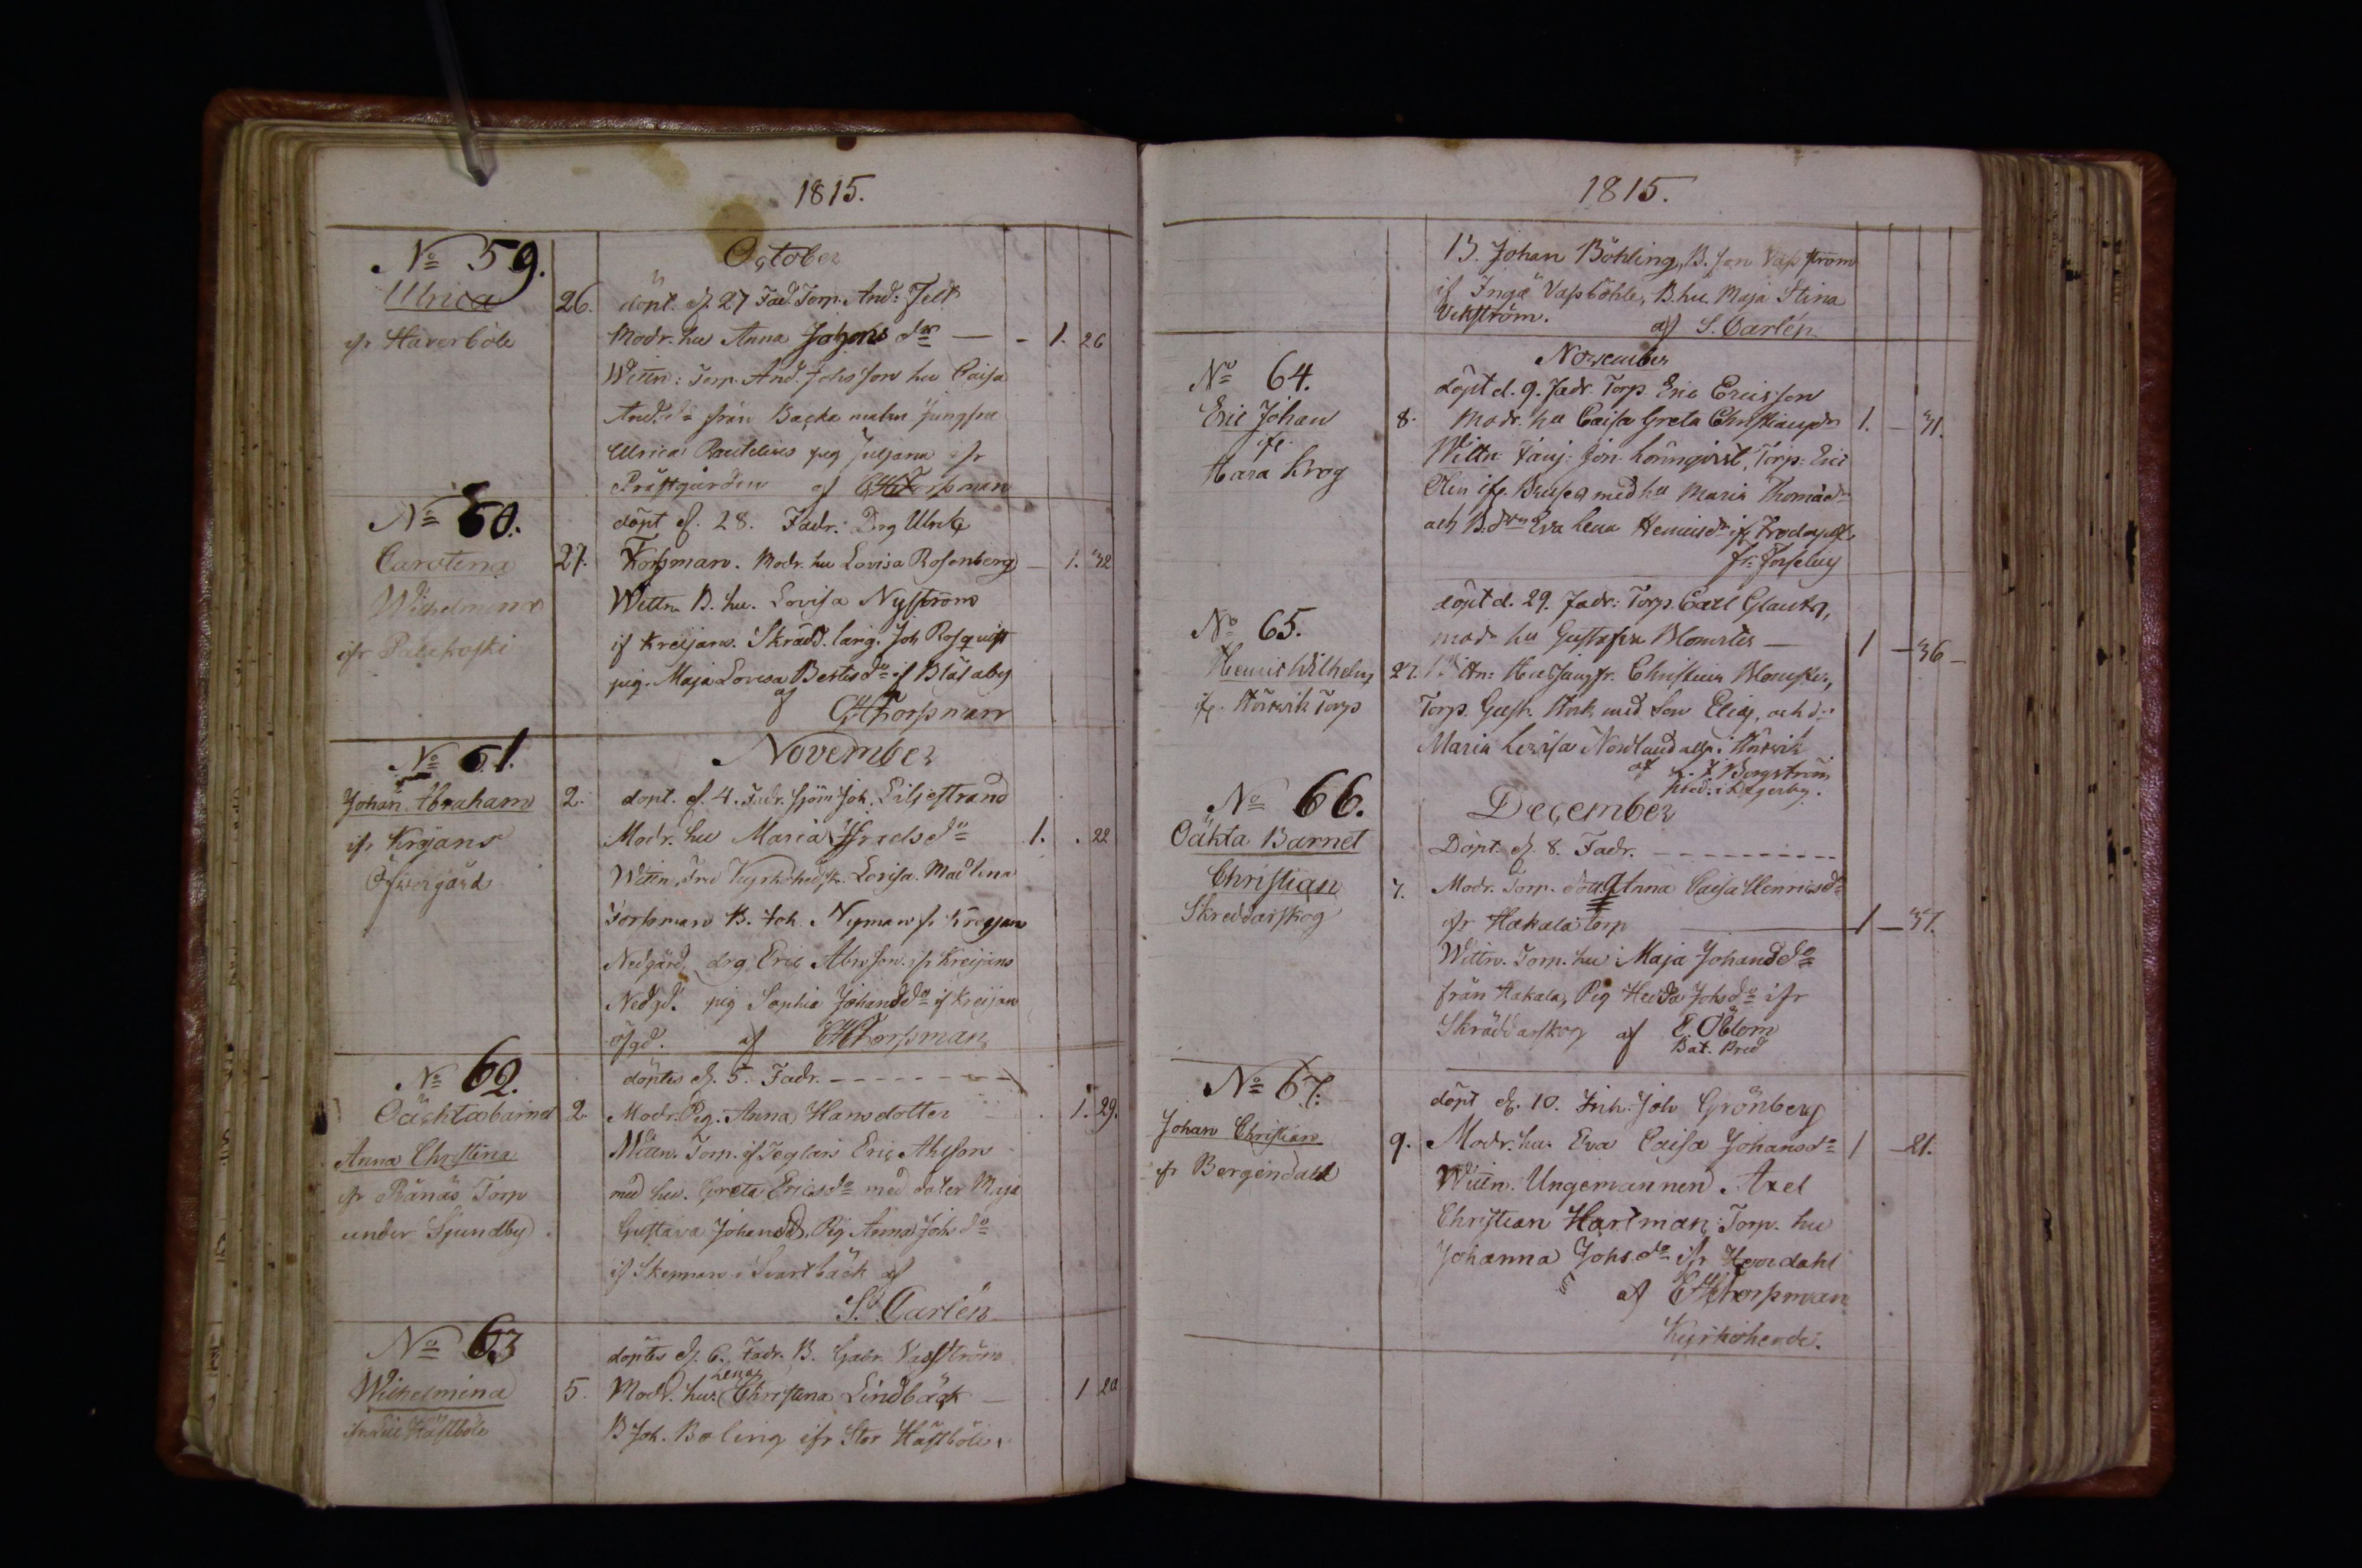 1815.
October
No 59.
Ulrica
ifr Haverböle
26. döpt d. 27 Fad. Torp. And: Felt
Modr. hu Anna Johans dr — - 1. 26
Wittn: Torp. And. Johsson hu Caisa
And. dr från Backa malm Jungfru
Ulrica Rautelius pig Juljana ifr
Prästgården af CHForsman
No 60.
Carolina
Wilhelmina
ifr Palakoski
27.
döpt d. 28. Fadr: Drg Ulric
Forsman. Modr. hu Lovisa Rosenberg — 1. 32
Wittn B. hu. Lovisa Nyström
if Kreijans. Skrädd. lärg. Joh Rosquist
pig. Maja Lovisa Bertisdr if Blåsaby
af CHForsman
November
No 61.
Johan Abraham
ifr Krejans
Öfvergård
2. döpt. d. 4. Fadr. Sjöm Joh. Liljestrand
Modr. hu Maria Fredsdr 1. . 22
Wittn, Fru Kyrkoherdsk. Lovisa Madlena
Forsman B. Joh. Nyman fr Kreyjans
Nedgård, drg Eric Abrsson ifr Kreijans
Nedgd. pig Sophia Johansdr if Kreijans
öfgd. af CHForsman
No 62.
Oächta barnet
Anna Christina
ifr Rånäs Torp
under Sjundby
2.
döptes d. 5. Fadr. - - - - - - - -
Modr. Pig. Anna Hansdotter 1. 29.
Wittn. Torp. if Teglars Eric Ahlson
med hu. Greta Ericsdr med doter Maja
Gustava Johansd. Pig Anna Johsdr
if Skepnars i Svartbäck af
S. Carlén
No 63
Wilhelmina
ifr Lill Hästböle
5.
döptes d. 6. Fadr. B. Gabr. Vasström
Lena
Modr. hu: Christina Lindbäck — 1 20
B Joh. Boling ifr Stor Hästböle.
1815.
B. Johan Böhling, B. son Vasström
if Ingå Vassböhle, B. hu. Maja Stina
Vekström. af S. Carlén
November
No 64.
Eric Johan
ifr.
Hara Krog
8.
döpt d. 9. Fadr. Torp Eric Ericsson
Modr. hu Caisa Greta Christiansdr 1. — 31.
Wittn: Jön. Lönnqvist, Torp: Eric
med hu Maria Thomædr
och B. dtrn Eva Lena Henricsdr
Fr: Forselius
No 65.
Henric Wilhelm
ifr. Störsvik Torp
27.
döpt d. 29. Fadr: Torp. Carl Glantz,
modr hu Gustafva Blomster — 1 — 36 —
Wittn: Jungfr. Christina Blomster,
Torp. Gust. Stork med Son Elias, och dr
Maria Lovisa Nordlund alla i Störsvik
af Bergström
Pred: i Degerby.
December
No 66.
Oäkta Barnet
Christian
Skreddarskog
7.
Döpt. d. 8. Fadr. - - - - - - - - -
Modr. Torp. dott. Anna Caisa Henricsdr
ifr Hakala torp — 1 — 37.
Wittn. Torp. hu Maja Johansdr
från Hakala, Pig Hedda Johsdr ifr
Skräddarskog af E. Öblom
Bat. Pred
No 67.
Johan Christian
ifr Bergendahl
9.
döpt d. 10. Inh. Joh Grönberg
Modr. hu. Eva Caisa Johansdr 1 — 21.
Wittn. Ungemannen Axel
Christian Hartman, Torp. hu
Johanna Johsdr ifr
af CHForsman
Kyrkoherde.